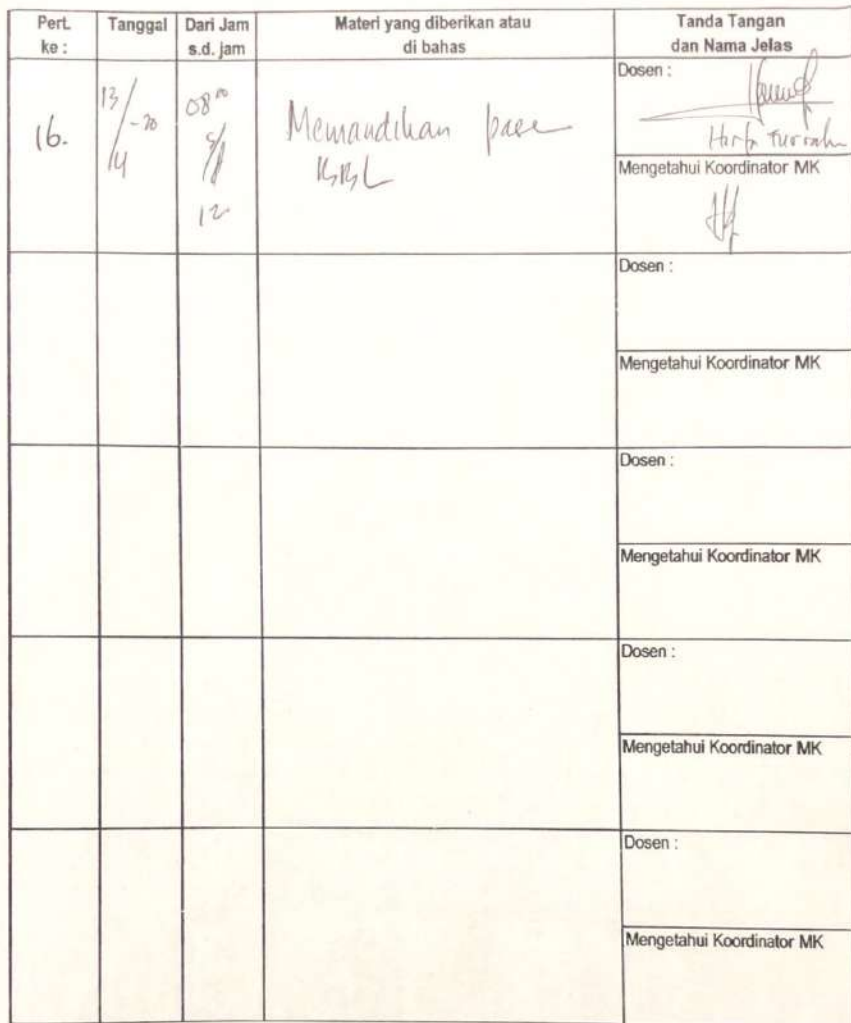 Pert. ke :
Tanggal
Dari Jam s.d. jam
Materi yang diberikan atau di bahas
Tanda Tangan dan Nama Jelas
16.
13/4 - 20
08⁰⁰
s/d
12
Memandikan pada
BBL
Dosen :
Mengetahui Koordinator MK
Dosen :
Mengetahui Koordinator MK
Dosen :
Mengetahui Koordinator MK
Dosen :
Mengetahui Koordinator MK
Dosen :
Mengetahui Koordinator MK